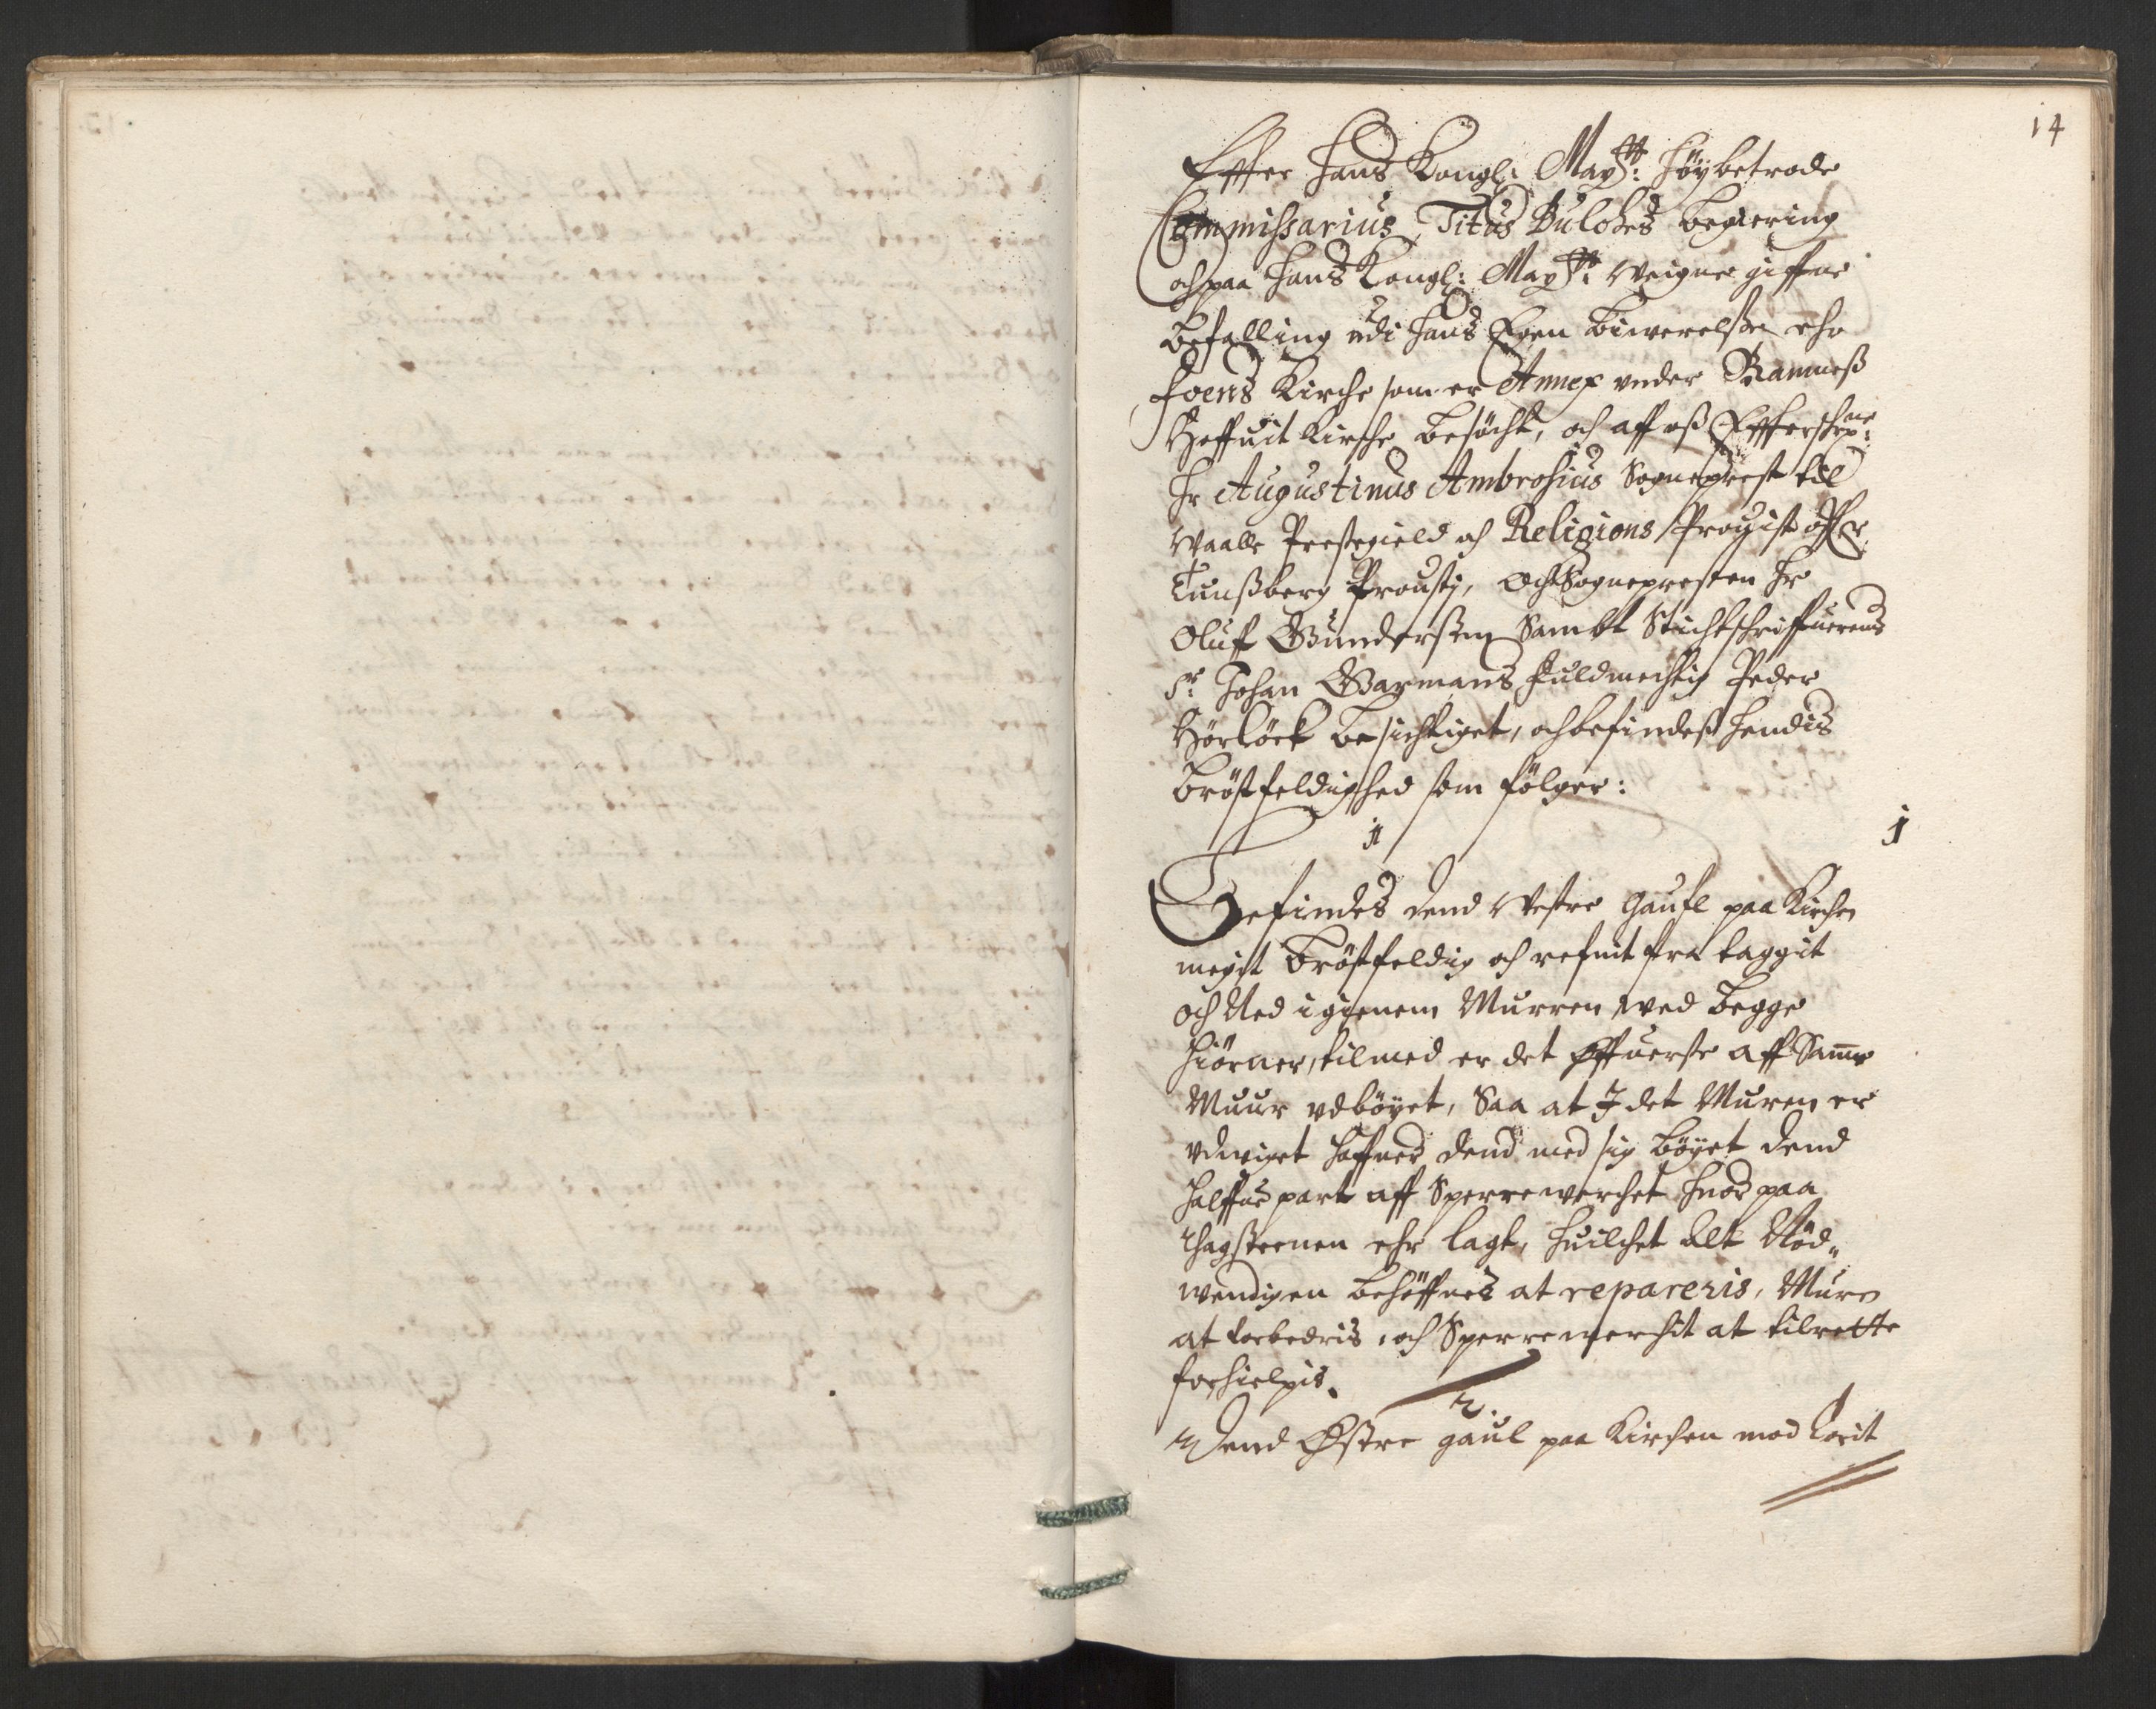 14
Effter Hans Kongl: May:tt: Høÿbetrode
Commissarius Titus Bulches begiering
och paa Hans Kongl: May:tt: Weigne giffne
befalling udi Hans Egen biwerelse ehr
foens Kirche som er Annex under Ramneß
Hoffuit Kirche besöcht, och aff oß Effterschr:ne
Hr Augustinus Ambrosius Sogneprest till
Waalle Prestegield och Religions Prouist offr
Tunßberg Proustj, och Sognepresten Hr
Oluff Gundersen Sambt Stichtschriffuerens
Sr: Johan Garmans fuldmechtig Peder
Hörlöck besichtiget, och befindeß hendis
Bröstfeldighed som fölger:
1 1
Befindes dend Westre Gaufl paa Kirchen
megit Bröstfeldig och refnit fra taggit
och Ned igienem Murren wed begge
hiörner, tilmed er det Öffuerste aff Samme
Muur udböyet, Saa at I det Muren er
udwiget haffuer dend med sig böyet dend
halffue part aff Sperrewerchet huor paa
thagsteenen ehr lagt, huilchet alt Nöd„
wendigen behöffues at repareris, Muren
at forbedris, och Sperrewerchit at tilrette
forhielpis.
2.
Dend Östre gaul paa Kirchen mod Corit